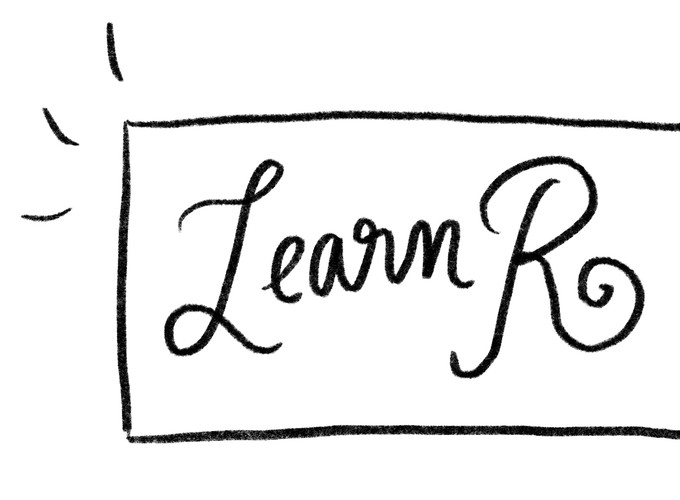 Learn R